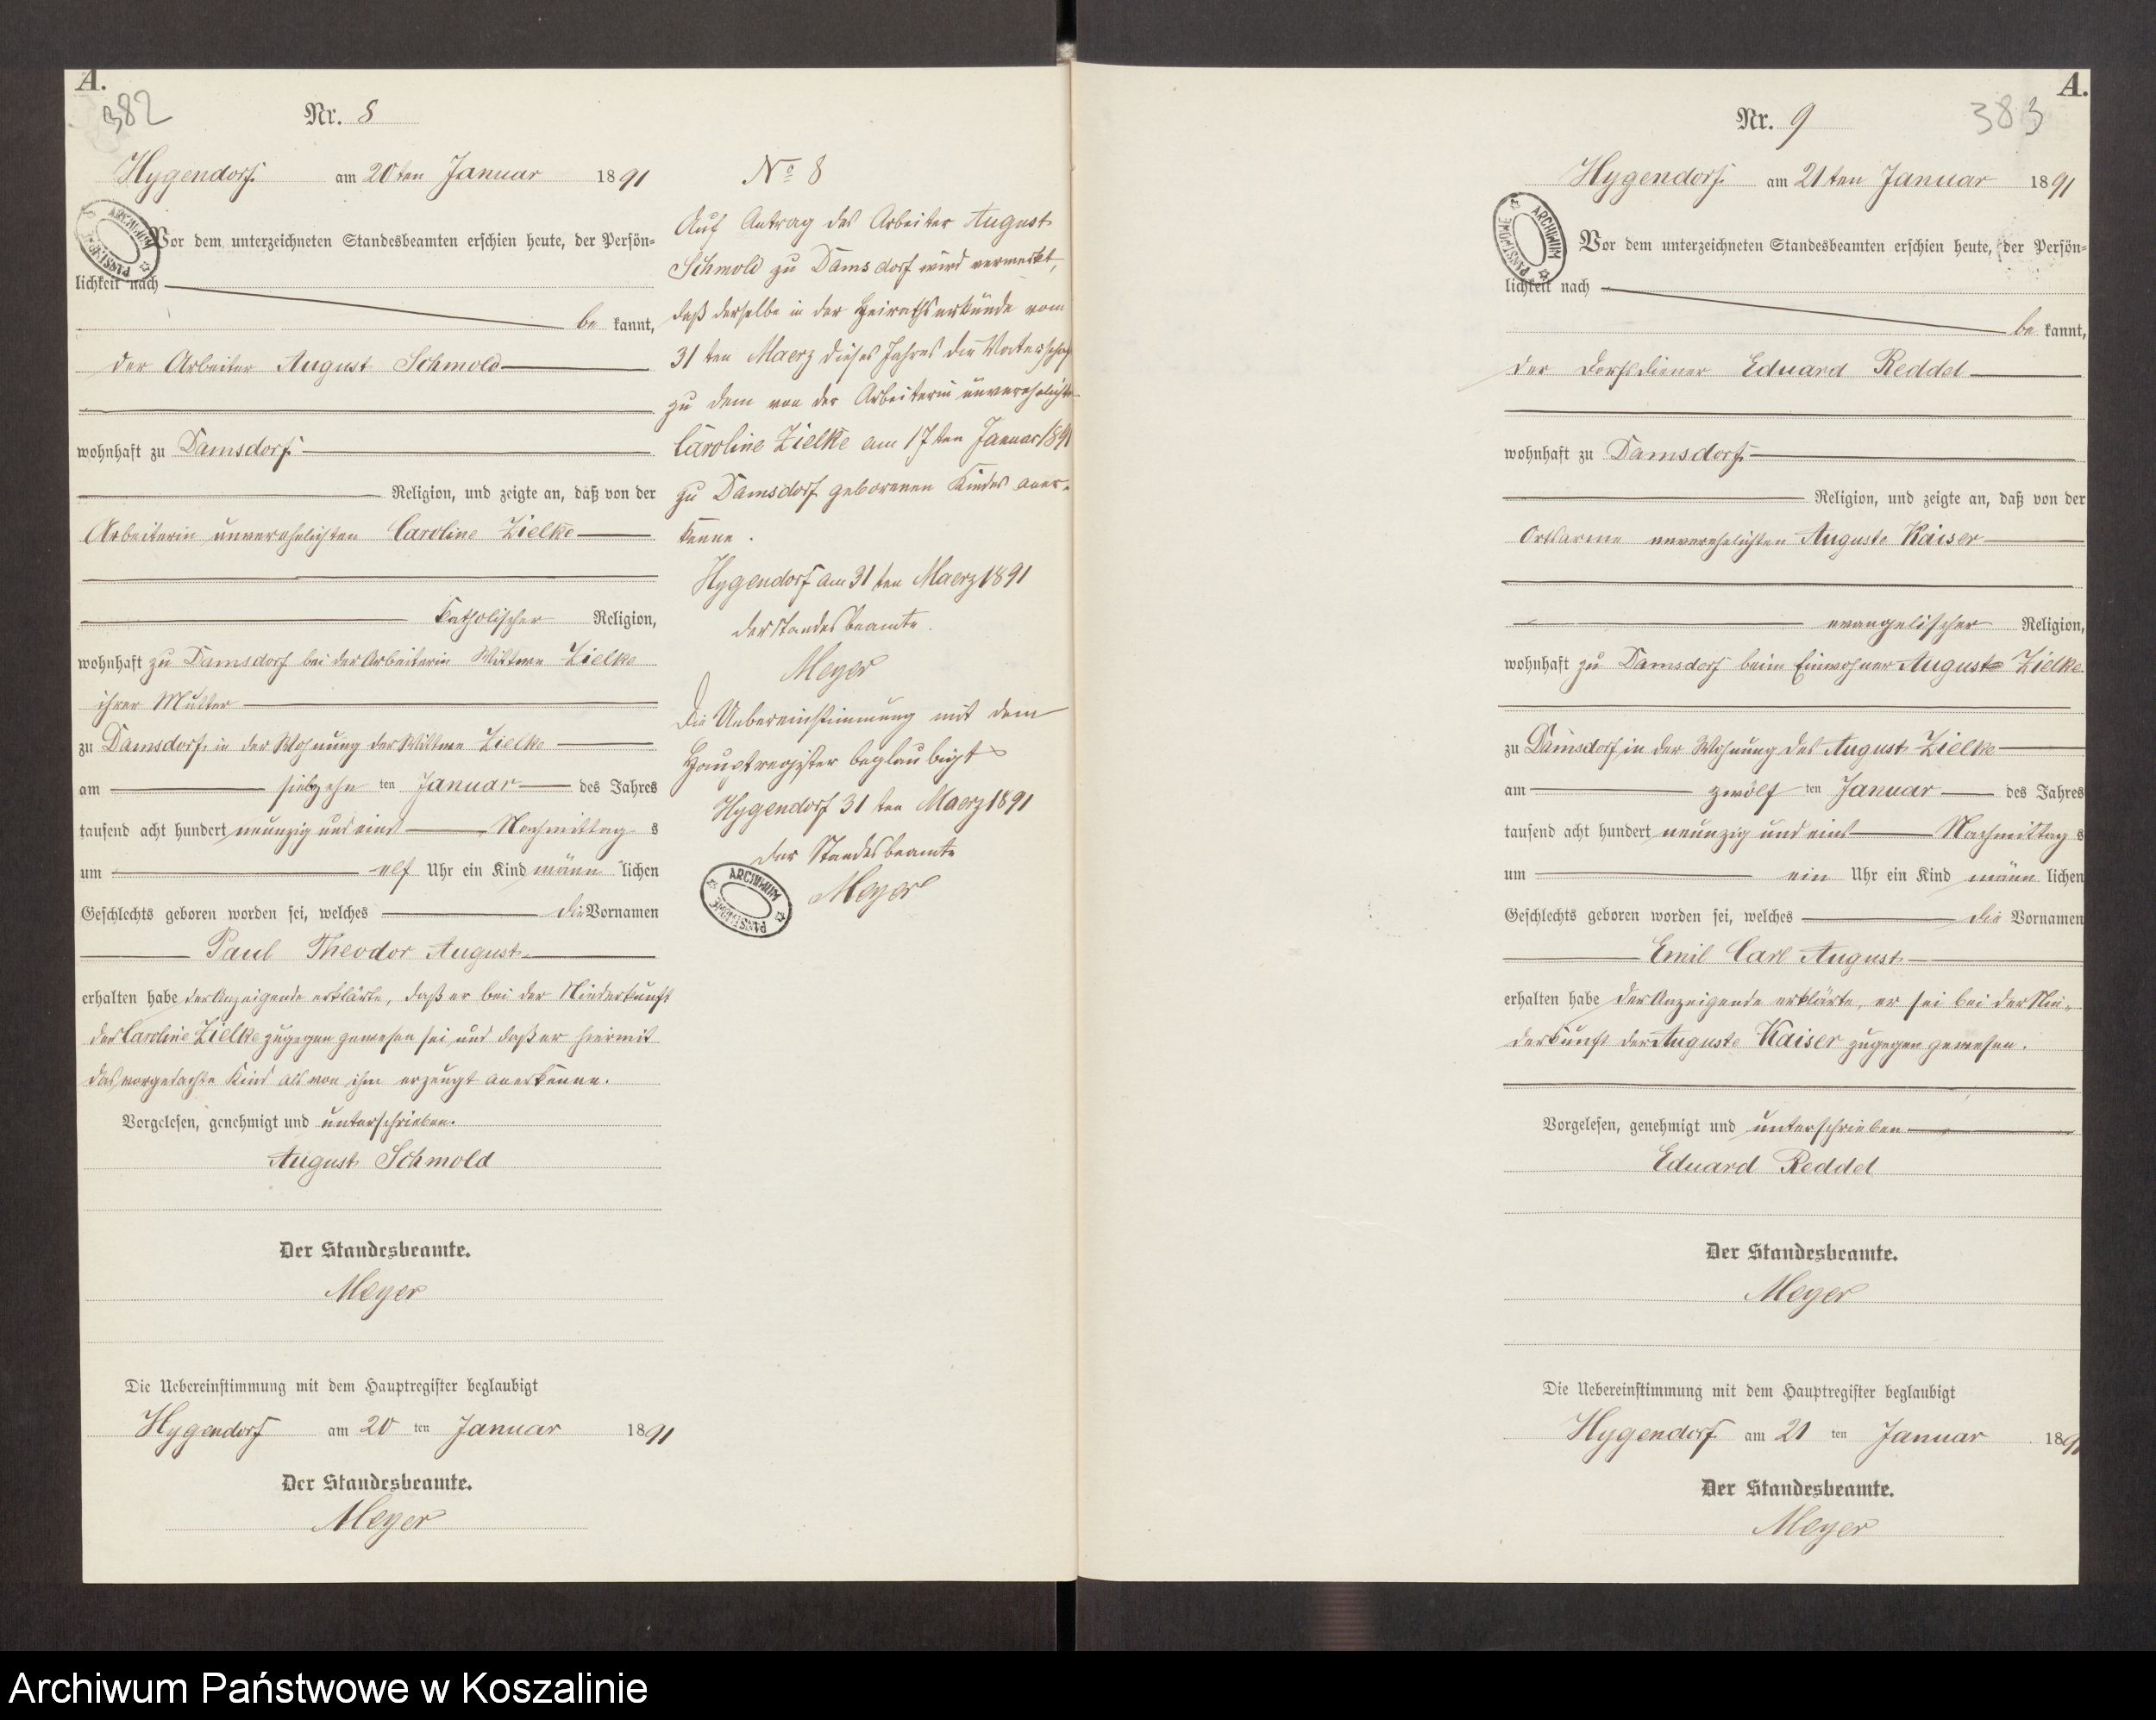 A.
382
Nr. 8
Hygendorf. am 20ten Januar 1891
Vor dem unterzeichneten Standesbeamten erschien heute, der Persön=
lichkeit nach
be kannt,
der Arbeiter August Schmold
wohnhaft zu Damsdorf.
Religion, und zeigte an, daß von der
Arbeiterin unverehelichten Caroline Zielke
katholischer Religion,
wohnhaft zu Damsdorf bei der Arbeiterin Wittwe Zielke
ihrer Mutter
zu Damsdorf. in der Wohnung der Wittwe Zielke
am siebzehn ten Januar des Jahres
tausend acht hundert neunzig und eins Nachmittag s
um elf Uhr ein Kind männ lichen
Geschlechts geboren worden sei, welches die Vornamen
Paul Theodor August
erhalten habe der Anzeigende erklärte, daß er bei der Niederkunft
der Caroline Zielke zugegen gewesen sei und daß er hiermit
das vorgedachte Kind als von ihm erzeugt anerkenne.
Vorgelesen, genehmigt und unterschrieben.
August Schmold
Der Standesbeamte.
Meyer
Die Uebereinstimmung mit dem Hauptregister beglaubigt
Hygendorf am 20 ten Januar 1891
Der Standesbeamte.
Meyer
No 8
Auf Antrag des Arbeiter August
Schmold zu Damsdorf wird vermerkt,
daß derselbe in der Heirathsurkunde vom
31ten Maerz dieses Jahres die Vaterschaft
zu dem von der Arbeiterin unverehelichte
Caroline Zielke am 17ten Januar 1891
zu Damsdorf geborenen Kindes aner-
kenne.
Hygendorf am 31ten Maerz 1891
der Standesbeamte.
Meyer
Die Uebereinstimmung mit dem
Hauptregister beglaubigt
Hygendorf 31ten Maerz 1891
der Standesbeamte
Meyer
ARCHIWUM
PAŃSTWOWE
A.
383
Nr. 9
Hygendorf. am 21ten Januar 1891
Vor dem unterzeichneten Standesbeamten erschien heute, der Persön=
lichkeit nach
be kannt,
der Dorfdiener Eduard Reddel
wohnhaft zu Damsdorf.
Religion, und zeigte an, daß von der
Ortsarme unverehelichten Auguste Kaiser
evangelischer Religion,
wohnhaft zu Damsdorf beim Einwohner August Zielke
zu Damsdorf in der Wohnung des August Zielke
am zwölf ten Januar des Jahres
tausend acht hundert neunzig und eins Nachmittag s
um ein Uhr ein Kind männ lichen
Geschlechts geboren worden sei, welches die Vornamen
Emil Carl August
erhalten habe der Anzeigende erklärte, er sei bei der Nie-
derkunft der Auguste Kaiser zugegen gewesen.
Vorgelesen, genehmigt und unterschrieben
Eduard Reddel
Der Standesbeamte.
Meyer
Die Uebereinstimmung mit dem Hauptregister beglaubigt
Hygendorf. am 21 ten Januar 1891
Der Standesbeamte.
Meyer
Archiwum Państwowe w Koszalinie